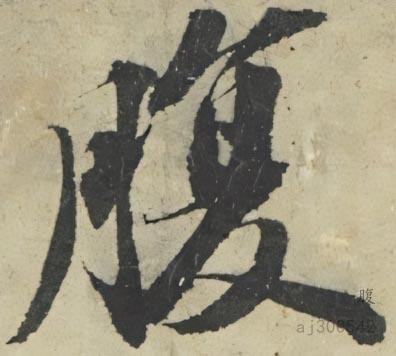 腹
腹
aj306542